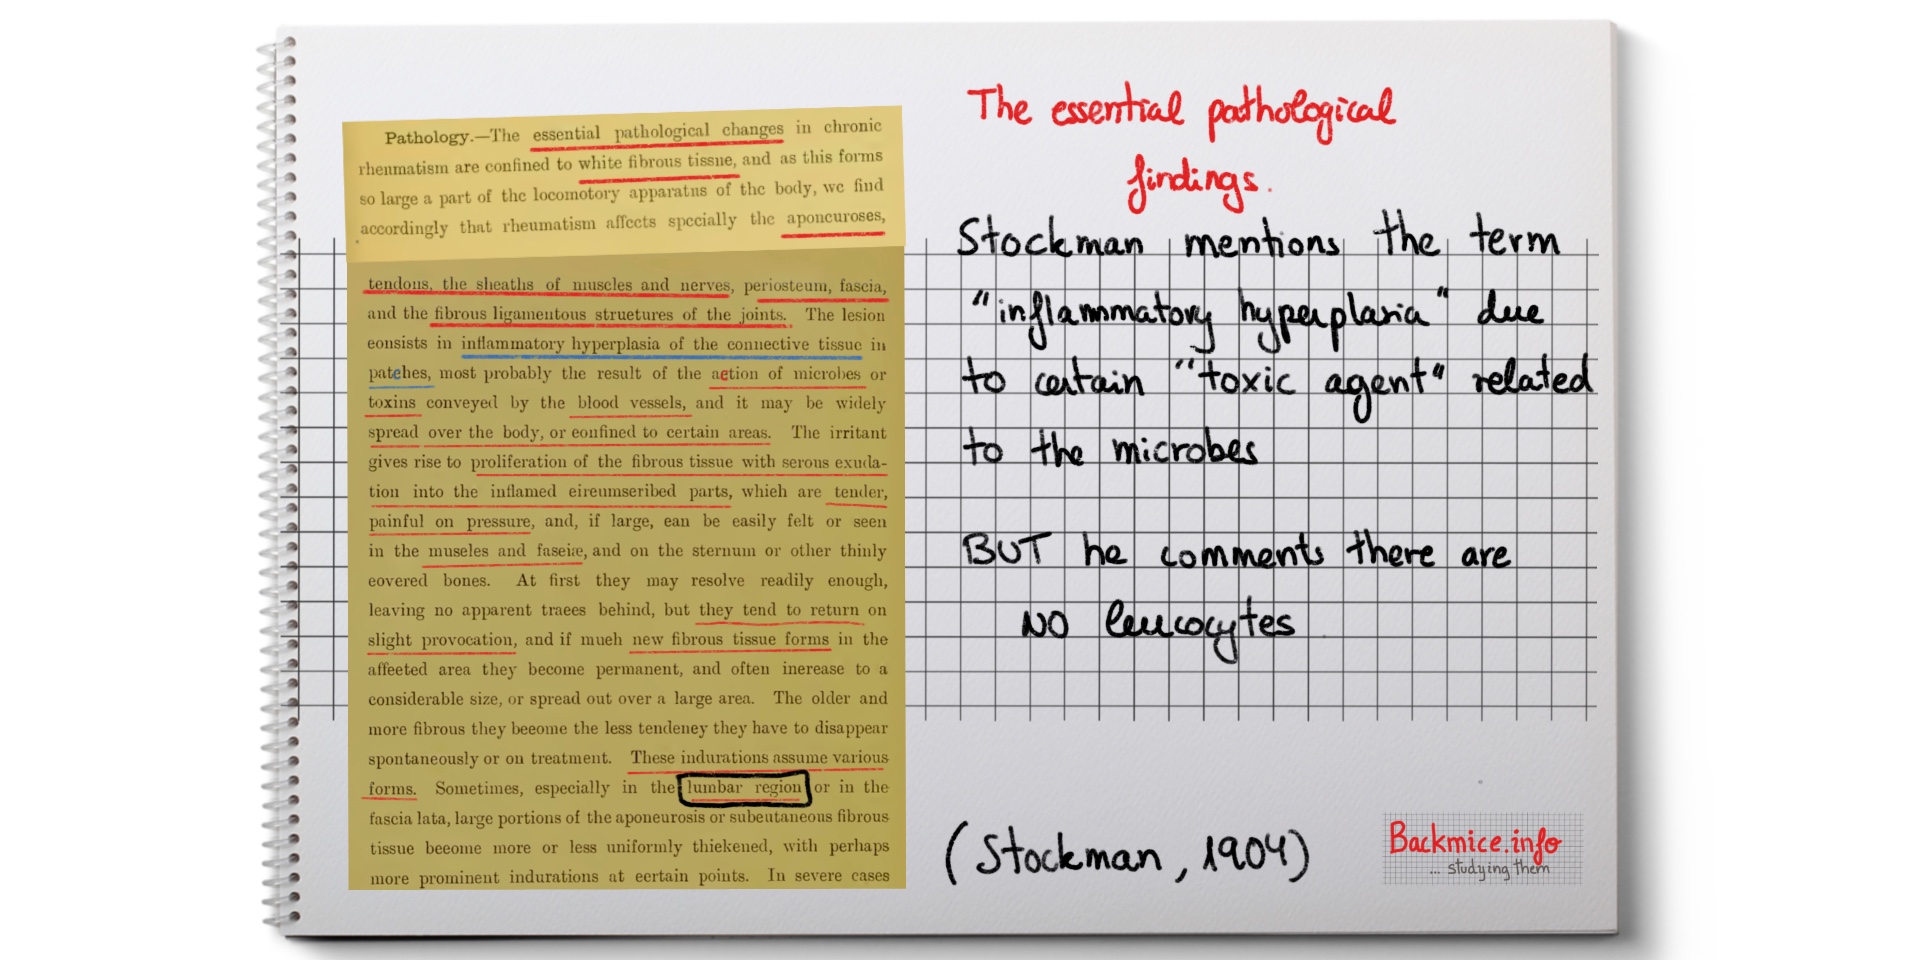 Pathology.—The essential pathological changes in chronic
rheumatism are confined to white fibrous tissue, and as this forms
so large a part of the locomotory apparatus of the body, we find
accordingly that rheumatism affects specially the aponeuroses,
tendons, the sheaths of muscles and nerves, periosteum, fascia,
and the fibrous ligamentous structures of the joints. The lesion
consists in inflammatory hyperplasia of the connective tissue in
patches, most probably the result of the action of microbes or
toxins conveyed by the blood vessels, and it may be widely
spread over the body, or confined to certain areas. The irritant
gives rise to proliferation of the fibrous tissue with serous exuda-
tion into the inflamed circumscribed parts, which are tender,
painful on pressure, and, if large, can be easily felt or seen
in the muscles and fasciæ, and on the sternum or other thinly
covered bones. At first they may resolve readily enough,
leaving no apparent traces behind, but they tend to return on
slight provocation, and if much new fibrous tissue forms in the
affected area they become permanent, and often increase to a
considerable size, or spread out over a large area. The older and
more fibrous they become the less tendency they have to disappear
spontaneously or on treatment. These indurations assume various
forms. Sometimes, especially in the lumbar region or in the
fascia lata, large portions of the aponeurosis or subcutaneous fibrous
tissue become more or less uniformly thickened, with perhaps
more prominent indurations at certain points. In severe cases
The essential pathological
findings.
Stockman mentions the term
"inflammatory hyperplasia" due
to certain "toxic agent" related
to the microbes
BUT he comments there are
NO leucocytes
(Stockman, 1904)
Backmice.info
... studying them